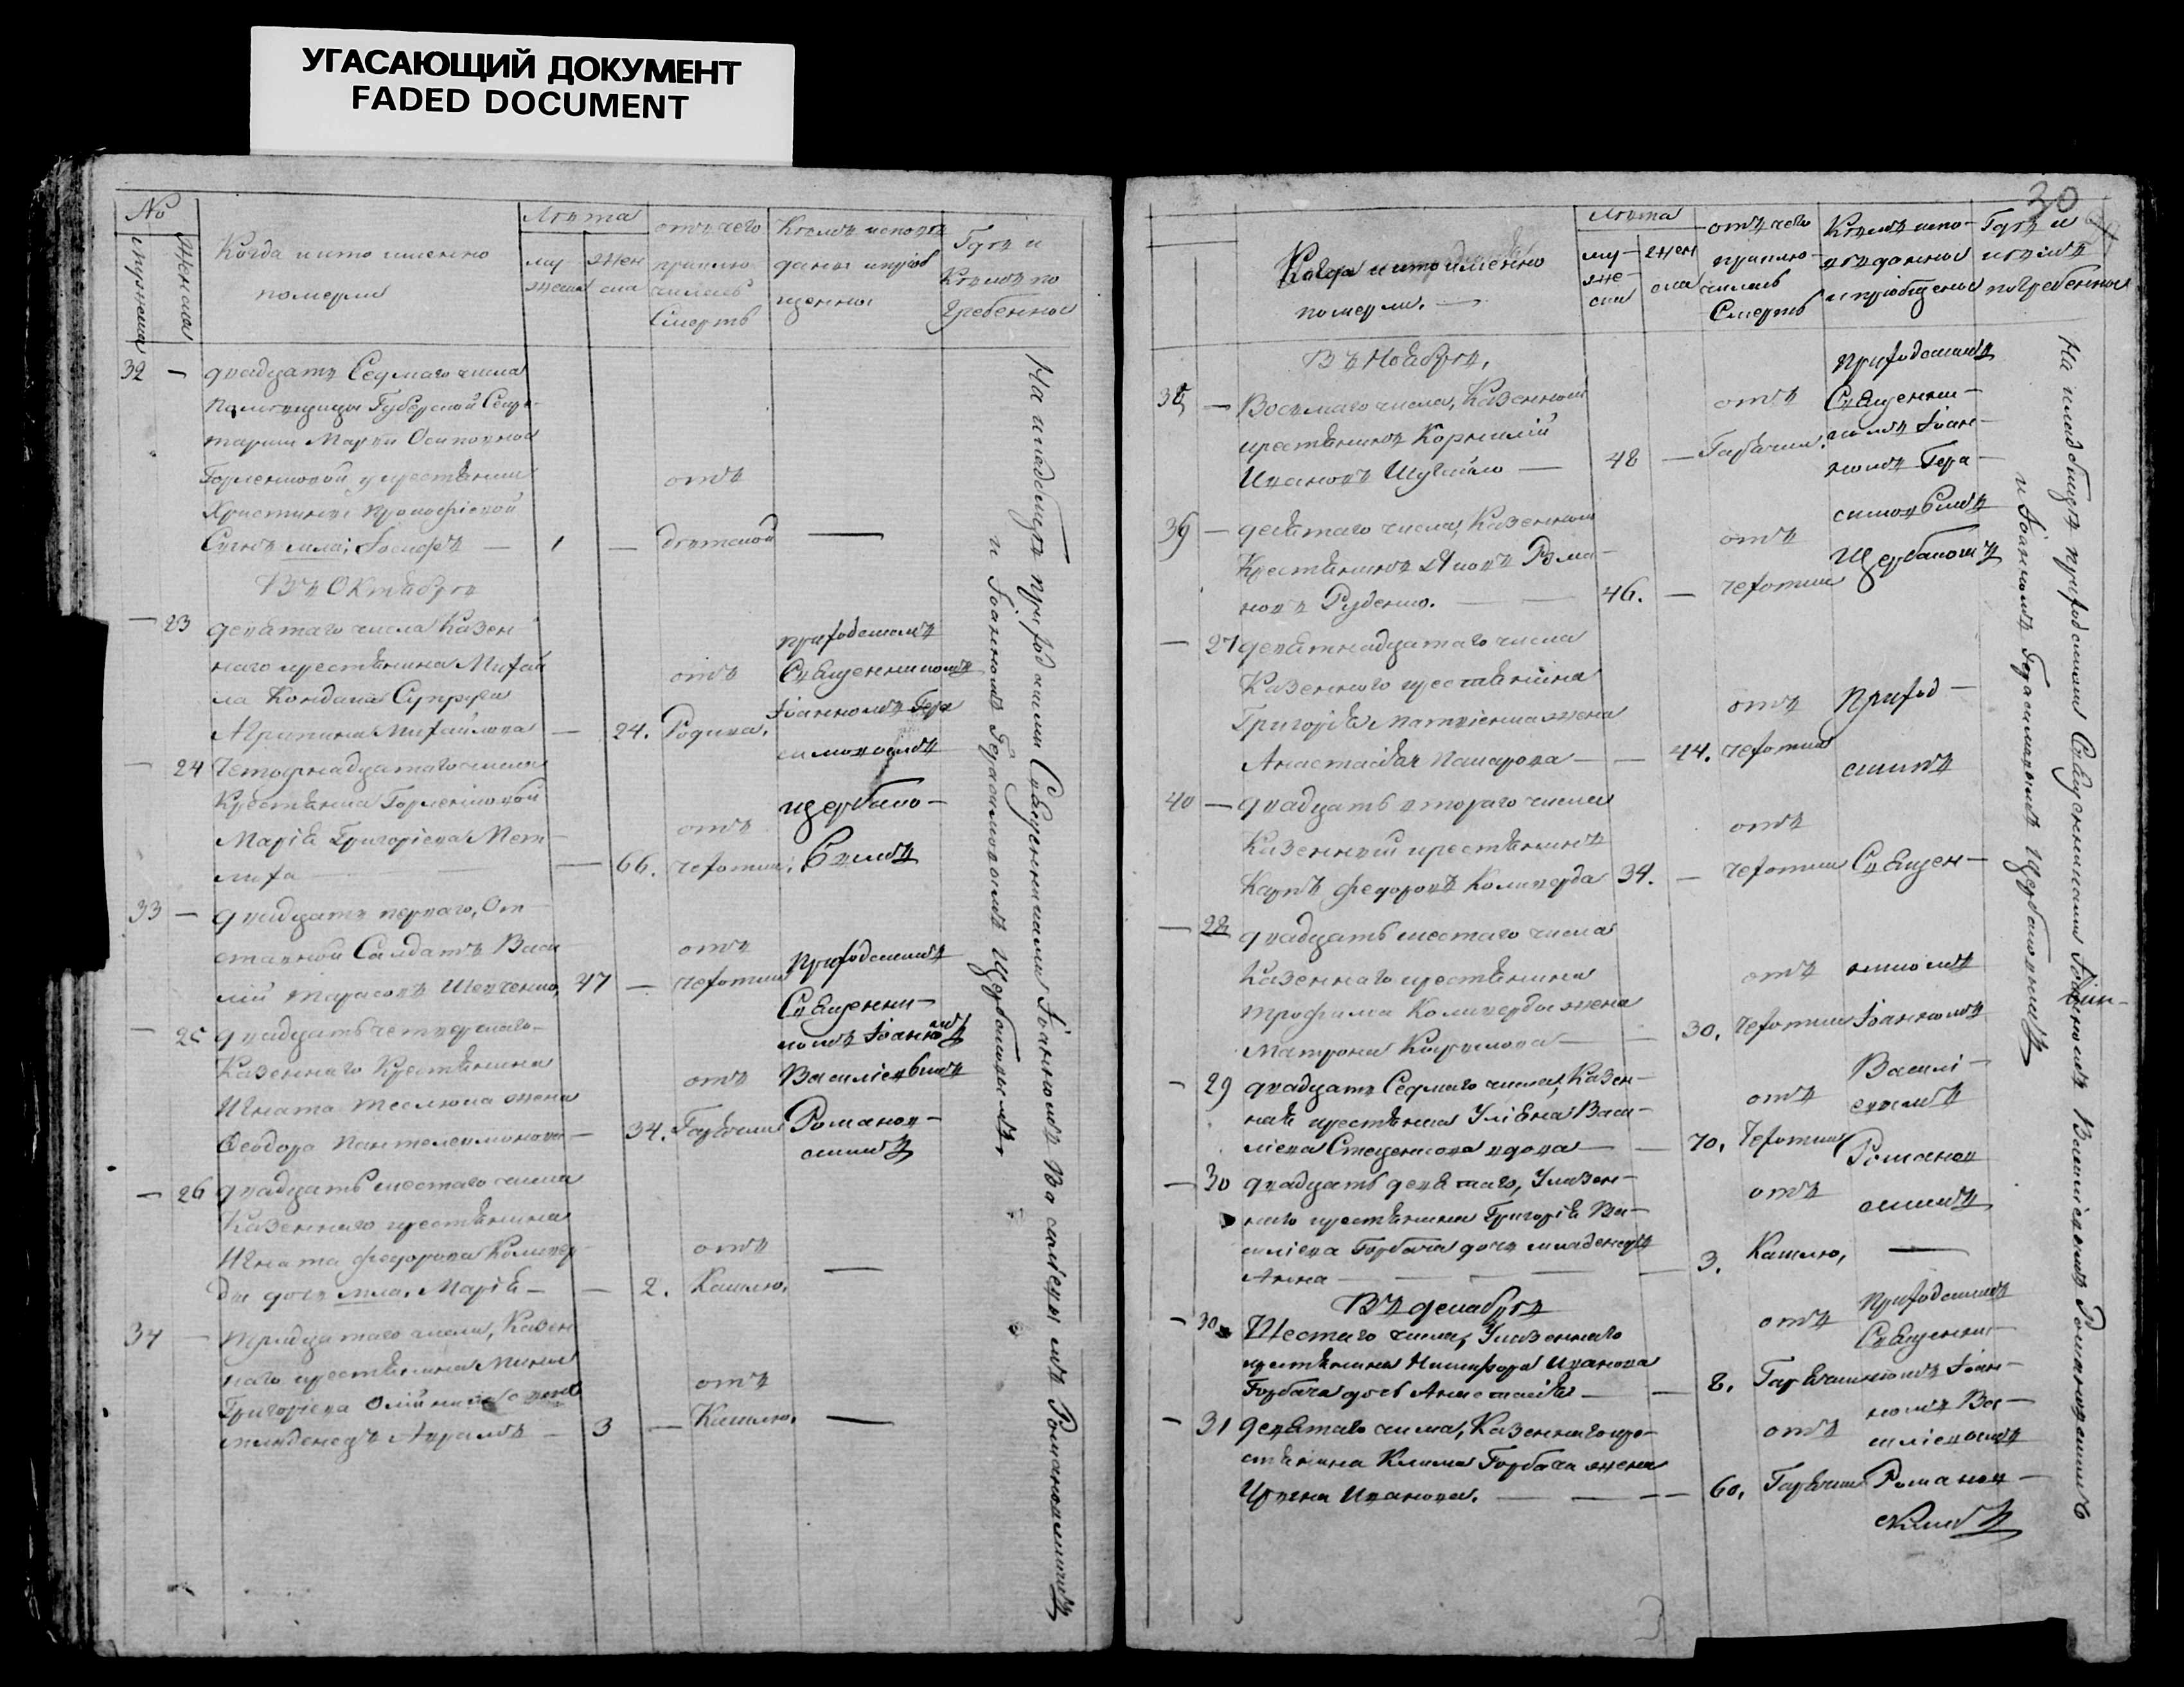 УГАСАЮЩИЙ ДОКУМЕНТ
FADED DOCUMENT
№
мужеска
женска
Когда и кто именно
померли
Лѣта
му
жеска
жен
ска
отъ чего
приклю
чилась
Смерть
Кѣмъ исповѣ
даны и пріоб
щенны
Гдѣ и
Кѣмъ по
гребенны
32 — двадцать Седмаго числа
Помѣщицы Губерской Секре-
тарши Маріи Осиповной
крестьянки
Сынъ мла: Іосифъ — 1 —
отъ
дѣтской —
Въ Октябрѣ
— 23 девятаго числа Казен
наго крестьянина Михай
ла Кондака Супруга
Агрипина Михайлова — 24.
отъ
Родива.
приходскимъ
Священникомъ
Іоанномъ Гера
симовымъ
Щербако-
вымъ
— 24 Четырнадцатаго числа
Крестьянка
Марія Григоріева
— 66.
отъ
чехотки.
33 — двадцать перваго, От
ставной Салдатъ Васи
лій Тарасовъ Шевченко, 47 —
отъ
чехотки
приходскимъ
Священни-
комъ Іоанномъ
Василіевымъ
Романов-
скимъ
— 25 двадцать четвертаго
Казеннаго Крестьянина
Игната Теслюка жена
Феодора Пантелеимонова — 34.
отъ
Горячки
— 26 двадцать шестаго числа
Казеннаго крестьянина
Игната Федорова Коливер
ды дочь мла. Марія — — 2.
отъ
Кашлю. —
34 — тридцатаго числа, Казен
наго крестьянина Мины
Григоріева Олійника сынъ
младенецъ Аврамъ — 3 —
отъ
Кашлю. —
На кладбищѣ приходскими Священниками Іоанномъ Василіевымъ Романовскимъ
и Іоанномъ Герасимовымъ Щербаковымъ.
30
Когда и кто именно
померли. —
Лѣта
му-
же-
ска
жен
ска
отъ чего
приклю-
чилась
Смерть
Кѣмъ испо-
вѣданны
и пріобщены
Гдѣ и
и кѣмъ
погребенны
Въ Ноябрѣ,
— Восемаго числа, Казенной
крестьянинъ Корнилій
Ивановъ Шугайло — 48 —
отъ
Горячки.
приходскимъ
Священни-
комъ Іоан-
номъ Гера-
симовымъ
Щербаковымъ
39 — девятаго числа, Казенной
Крестьянинъ Яковъ Рома-
новъ Руденко. — 46. —
отъ
чехотки
— 27 девятнадцатаго числа
Казеннаго крестьянина
Григорія Матвіенка жена
Анастасія Макарова — — 44.
отъ
чехотки
Приход-
скимъ
40 — двадцать втораго числа
Казенный крестьянинъ
Карпъ Федоровъ Коливерда 34. —
отъ
чехотки
Священ-
— 28 двадцать шестаго числа
Казеннаго крестьянина
Трофима Коливерды жена
Матрона — 30.
отъ
чехотки
никомъ
Іоанномъ
— 29 двадцать Седмаго числа, Казен-
ная крестьянка Уліяна Васи-
ліева Стеценкова вдова — — 70.
отъ
Чехотки
Василі-
евымъ
Романов
скимъ
— 30 двадцать девятаго, Указен-
наго крестьянина Григорія Ва-
силіева Горбача дочь младенецъ
Анна — — — 3.
отъ
Кашлю, —
Въ декабрѣ
— 30 Шестаго числа, Указеннаго
крестьянина Никифора Иванова
Горбача дочь Анастасія — — 8.
отъ
Горячки
Приходскимъ
Священни-
комъ Іоан-
номъ Ва-
силіевымъ
Романов-
скимъ
— 31 девятаго числа, Казеннаго кре-
стьянина Клима Горбача жена
Ирина Иванова. — — 60.
отъ
Горячки
На кладбищѣ приходскими Священниками Іоанномъ Василіевымъ Романовскимъ
и Іоанномъ Герасимовымъ Щербаковымъ